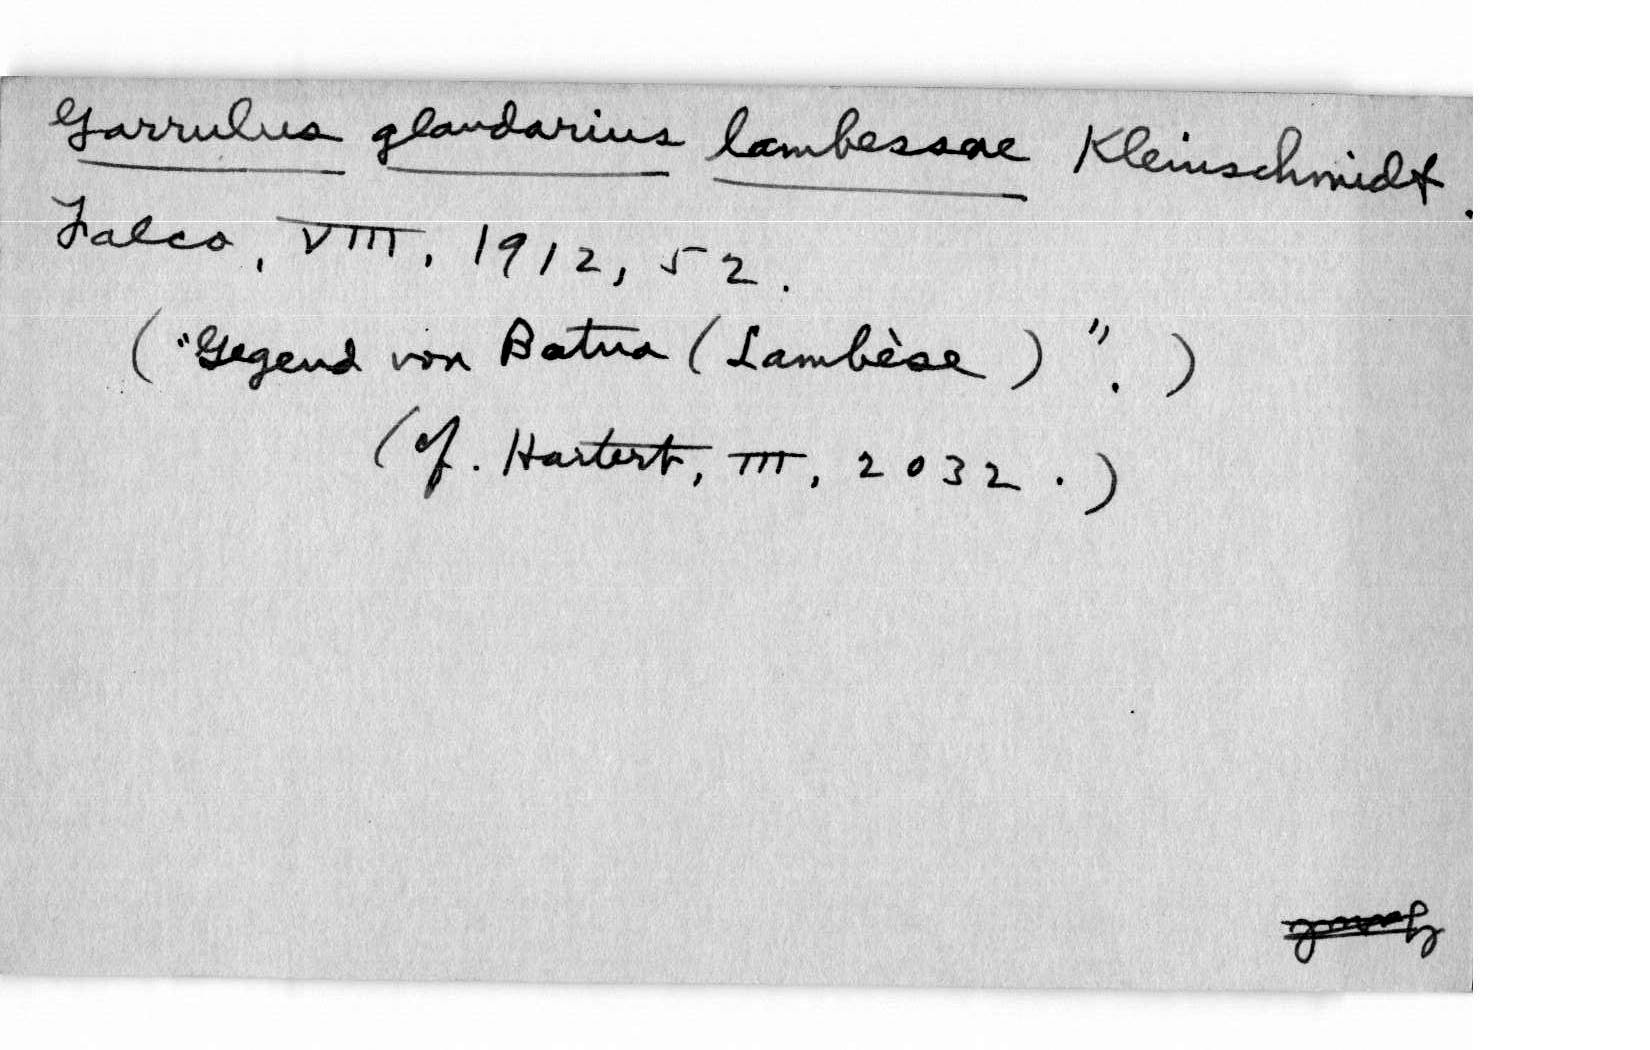 Garrulus glandarius lambessae Kleinschmidt.
Falco, VIII, 1912, 52.
("Gegend von Batna (Lambèse)".)
(cf. Hartert, III, 2032.)